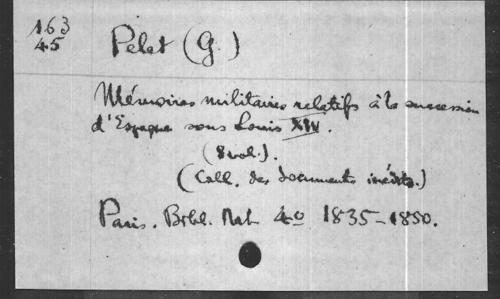 163
45
Pelet (G.)
Mémoires militaires relatifs à la succession
d'Espagne sous Louis XIV.
(8 vol.).
(Coll. des documents inédits.)
Paris. Bibl. Nat 4º 1835-1850.